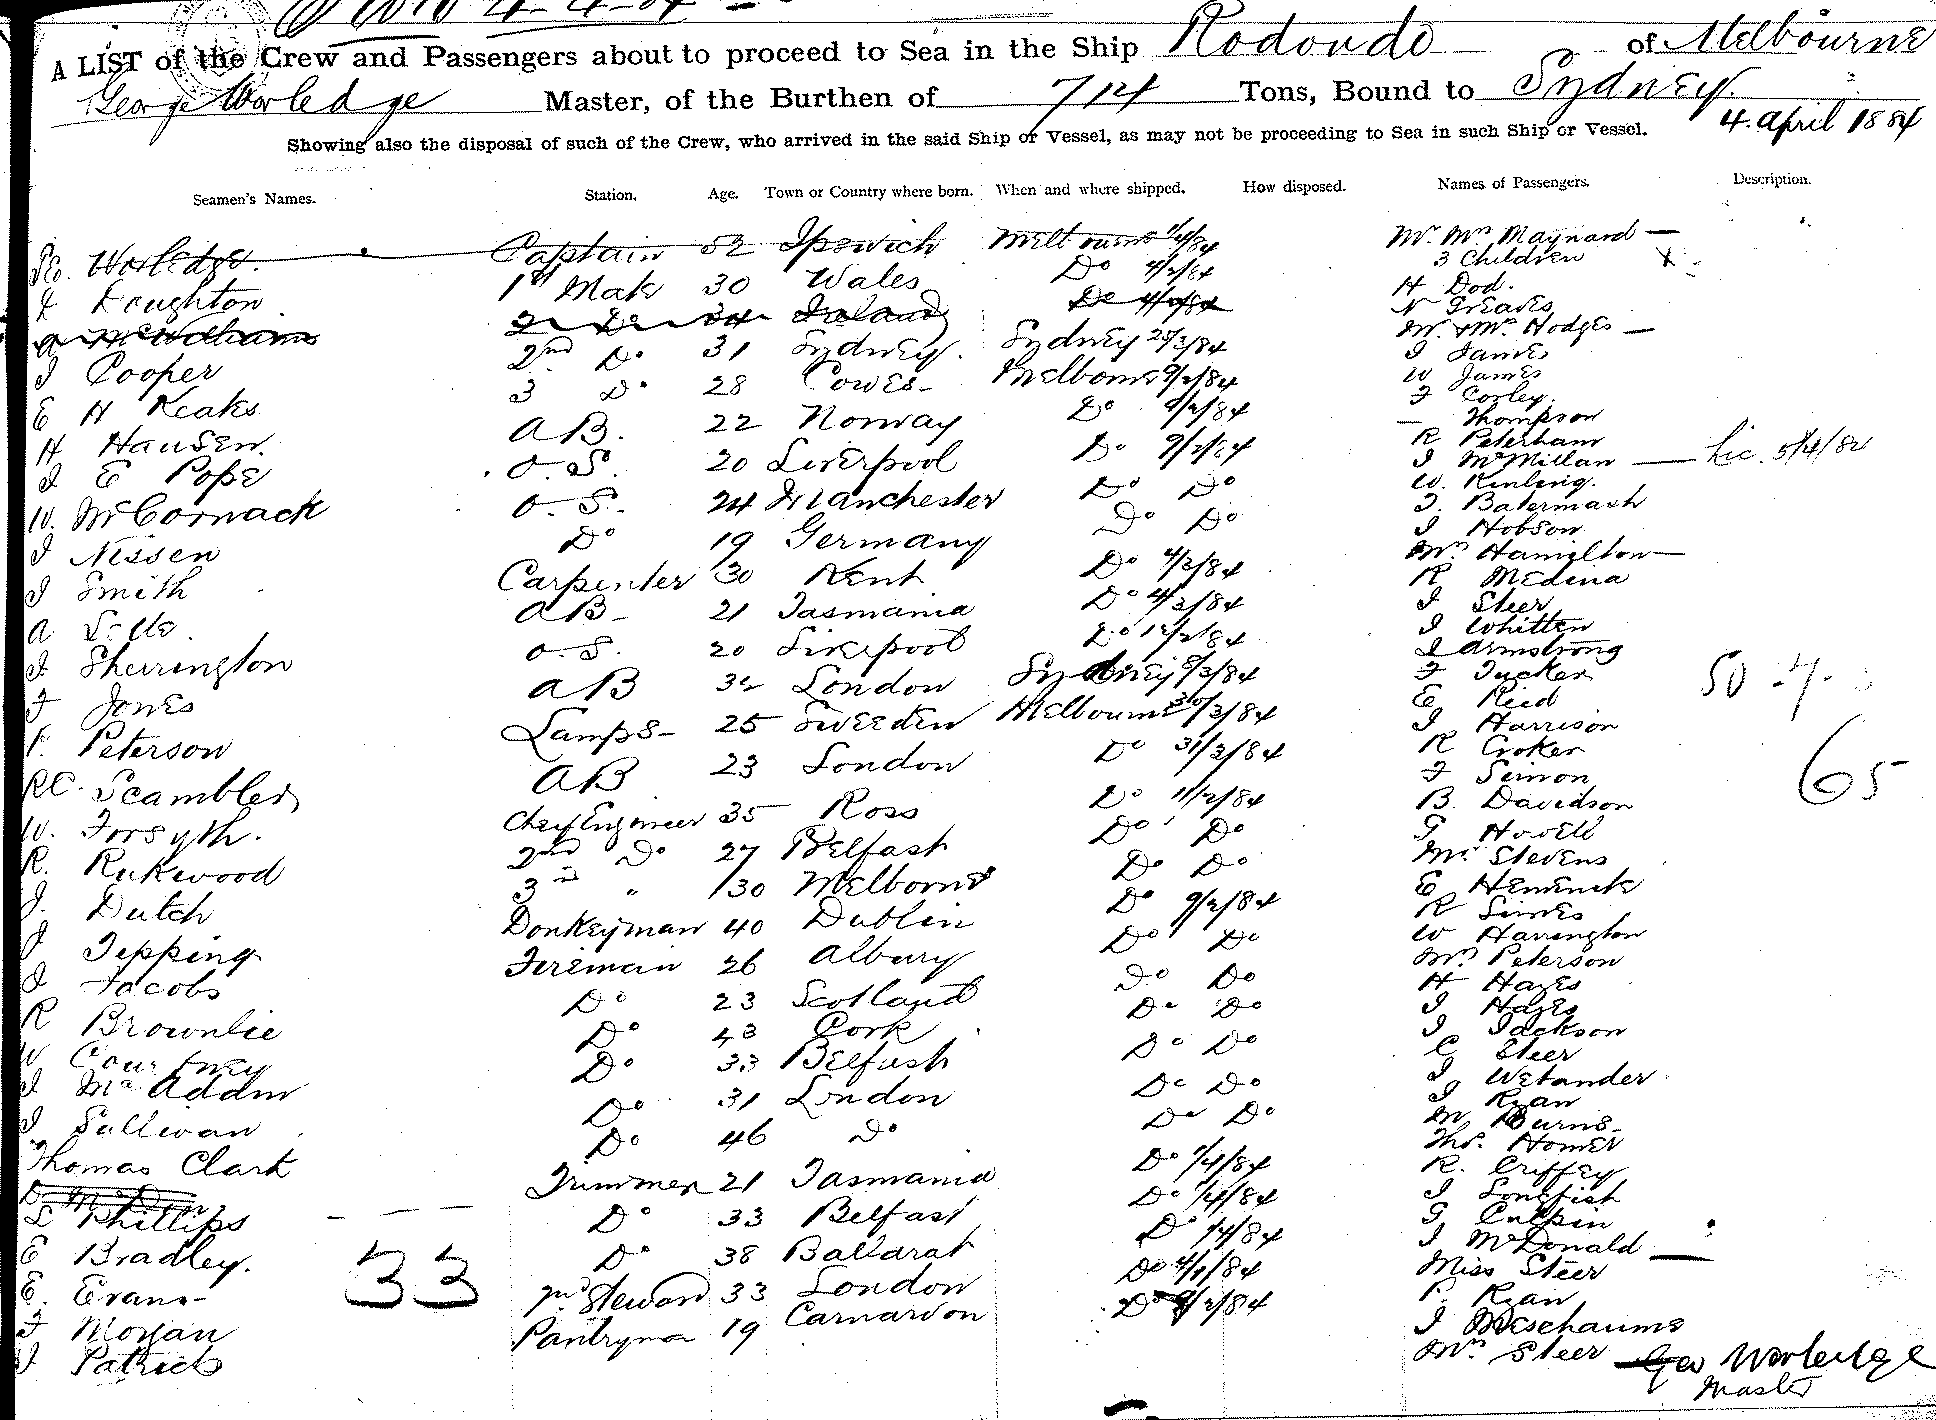 A LIST of the Crew and Passengers about to proceed to Sea in the Ship Rodondo of Melbourne
George Worledge Master, of the Burthen of 714 Tons, Bound to Sydney.
4. april 1884
Showing also the disposal of such of the Crew, who arrived in the said Ship or Vessel, as may not be proceeding to Sea in such Ship or Vessel.
Seamen's Names. Station. Age. Town or Country where born. When and where shipped. How disposed. Names of Passengers. Description.
Worledge. Captain 52 Ipswich Melbourne 1/4/84 Mr. Mrs Maynard
3 Children
Loughton 1st Mate 30 Wales Do 4/2/84 H Dod.
McWilliams 2 Do 34 Ireland Do N Greaves
J Cooper 2nd Do 31 Sydney. Sydney 25/3/84 Mr & Mrs Hodges
J James
E H Keaks 3 Do 28 Cowes Melborne 9/2/84 W James
F Corley.
H Hausen. AB. 22 Norway Do 9/2/84 Thompson
R Peterham
J E Pope O.S. 20 Liverpool Do 9/2/84 J McMillan Lic. 5/4/82
W. McCormack O.S. 24 Manchester Do Do W. Kinling.
J. Batermash
J Nissen Do 19 Germany Do Do J Hobson
J Smith Carpenter 30 Kent Do 4/2/84 Mrs Hamilton
R Medina
A AB 21 Tasmania Do 4/2/84 J Steer
J Sherrington O.S. 20 Liverpool Do 12/2/84 J Whitten
J Armstrong
F Jones AB London Sydney 8/3/84 F Tucker
E Reid
F. Peterson Lamps 25 Sweeden Melbourne 30/3/84 J Harrison
RC. Scambler AB 23 London Do 31/3/84 R Croker
F Simon
W. Forsyth. Chief Engineer 35 Ross Do 11/2/84 B. Davidson
R. Rukwood 2nd Do 27 Belfast Do Do G Howell
J. Dutch 3rd " 30 Melborne Do Do Mr Stevens
E
J Tepping Donkeyman 40 Dublin Do 9/2/84 R Simes
J Jacobs Fireman 26 Albury Do Do W Harrington
Mrs Peterson
R Brownlie Do 23 Scotland Do Do H Hayes
W Courtney Do 43 Cork Do Do J Hayes
J Jackson
J McAddm Do 33 Belfast Do Do C Steer
J Sullivan Do 31 London Do Do J Wetander
J Ryan
Thomas Clark Do 46 Do Do Do M Burns
Thos. Homer
L Phillips Trimmer 21 Tasmania Do 1/4/84 R. Criffey
J Longfish
E Bradley. Do 33 Belfast Do 1/4/84 G Culpin
E. Evans Do 38 Ballarat Do 1/4/84 J McDonald
F Morgan 2nd Steward 33 London Do 4/1/84 Miss Steer
J Patrick Pantryman 19 Carnarvon Do 9/2/84 P. Ryan
J Meschaums
Mrs Steer
33
65
Geo Worledge
Master